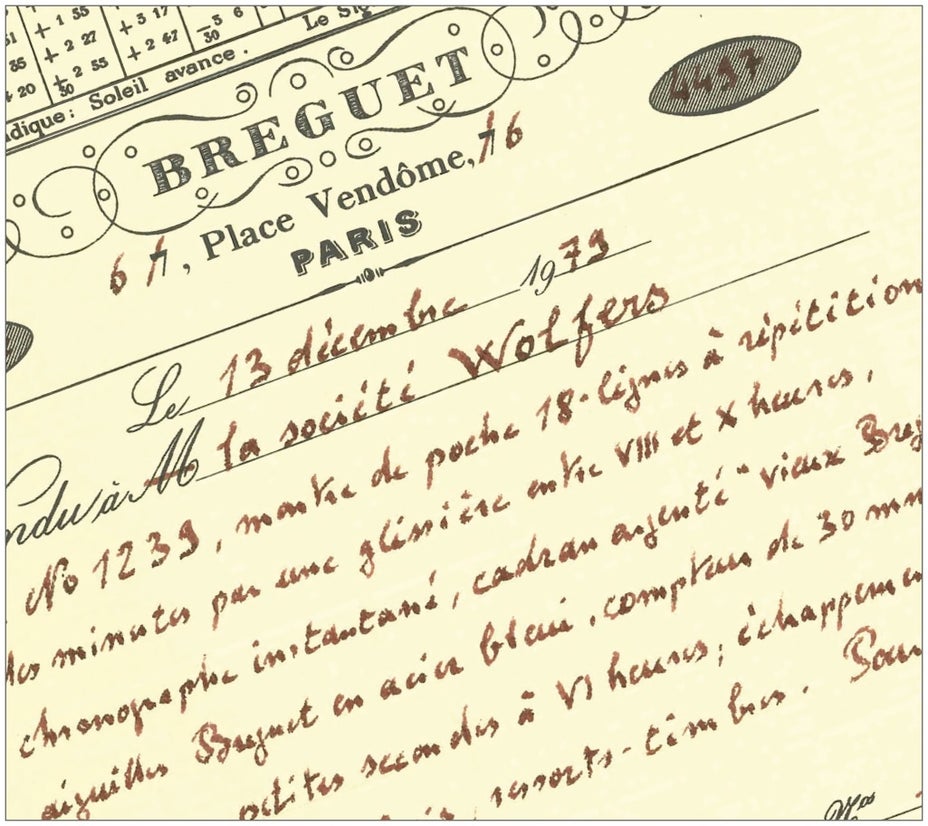 + 1 55 + 3 17 - 3 6
51 + 2 27 + 2 47 30 Le Sig
35 + 2 55
4 20 30
adique: Soleil avance.
BREGUET
4497
6 7, Place Vendôme, 7 6
PARIS
Le 13 décembre 1979
ndu à M la société Wolfers
No 1239, montre de poche 18-lignes à répétition
des minutes par une glissière entre VIII et X heures,
chronographe instantané, cadran argenté "vieux Breg
aiguilles Breguet en acier bleui, compteur de 30 mn
petites secondes à VI heures; échappeme
ressorts-timbres. Pour